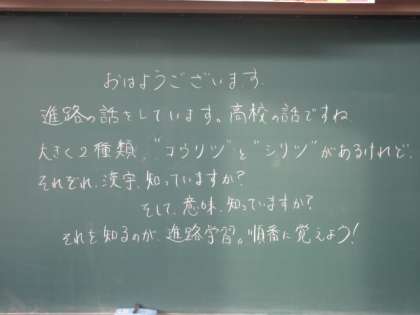 おはようございます。
進路の話をしています。高校の話ですね
大きく2種類。"コウリツ"と"シリツ"があるけれど、
それぞれ、漢字、知っていますか?
そして、意味、知っていますか?
それを知るのが、進路学習。順番に覚えよう!